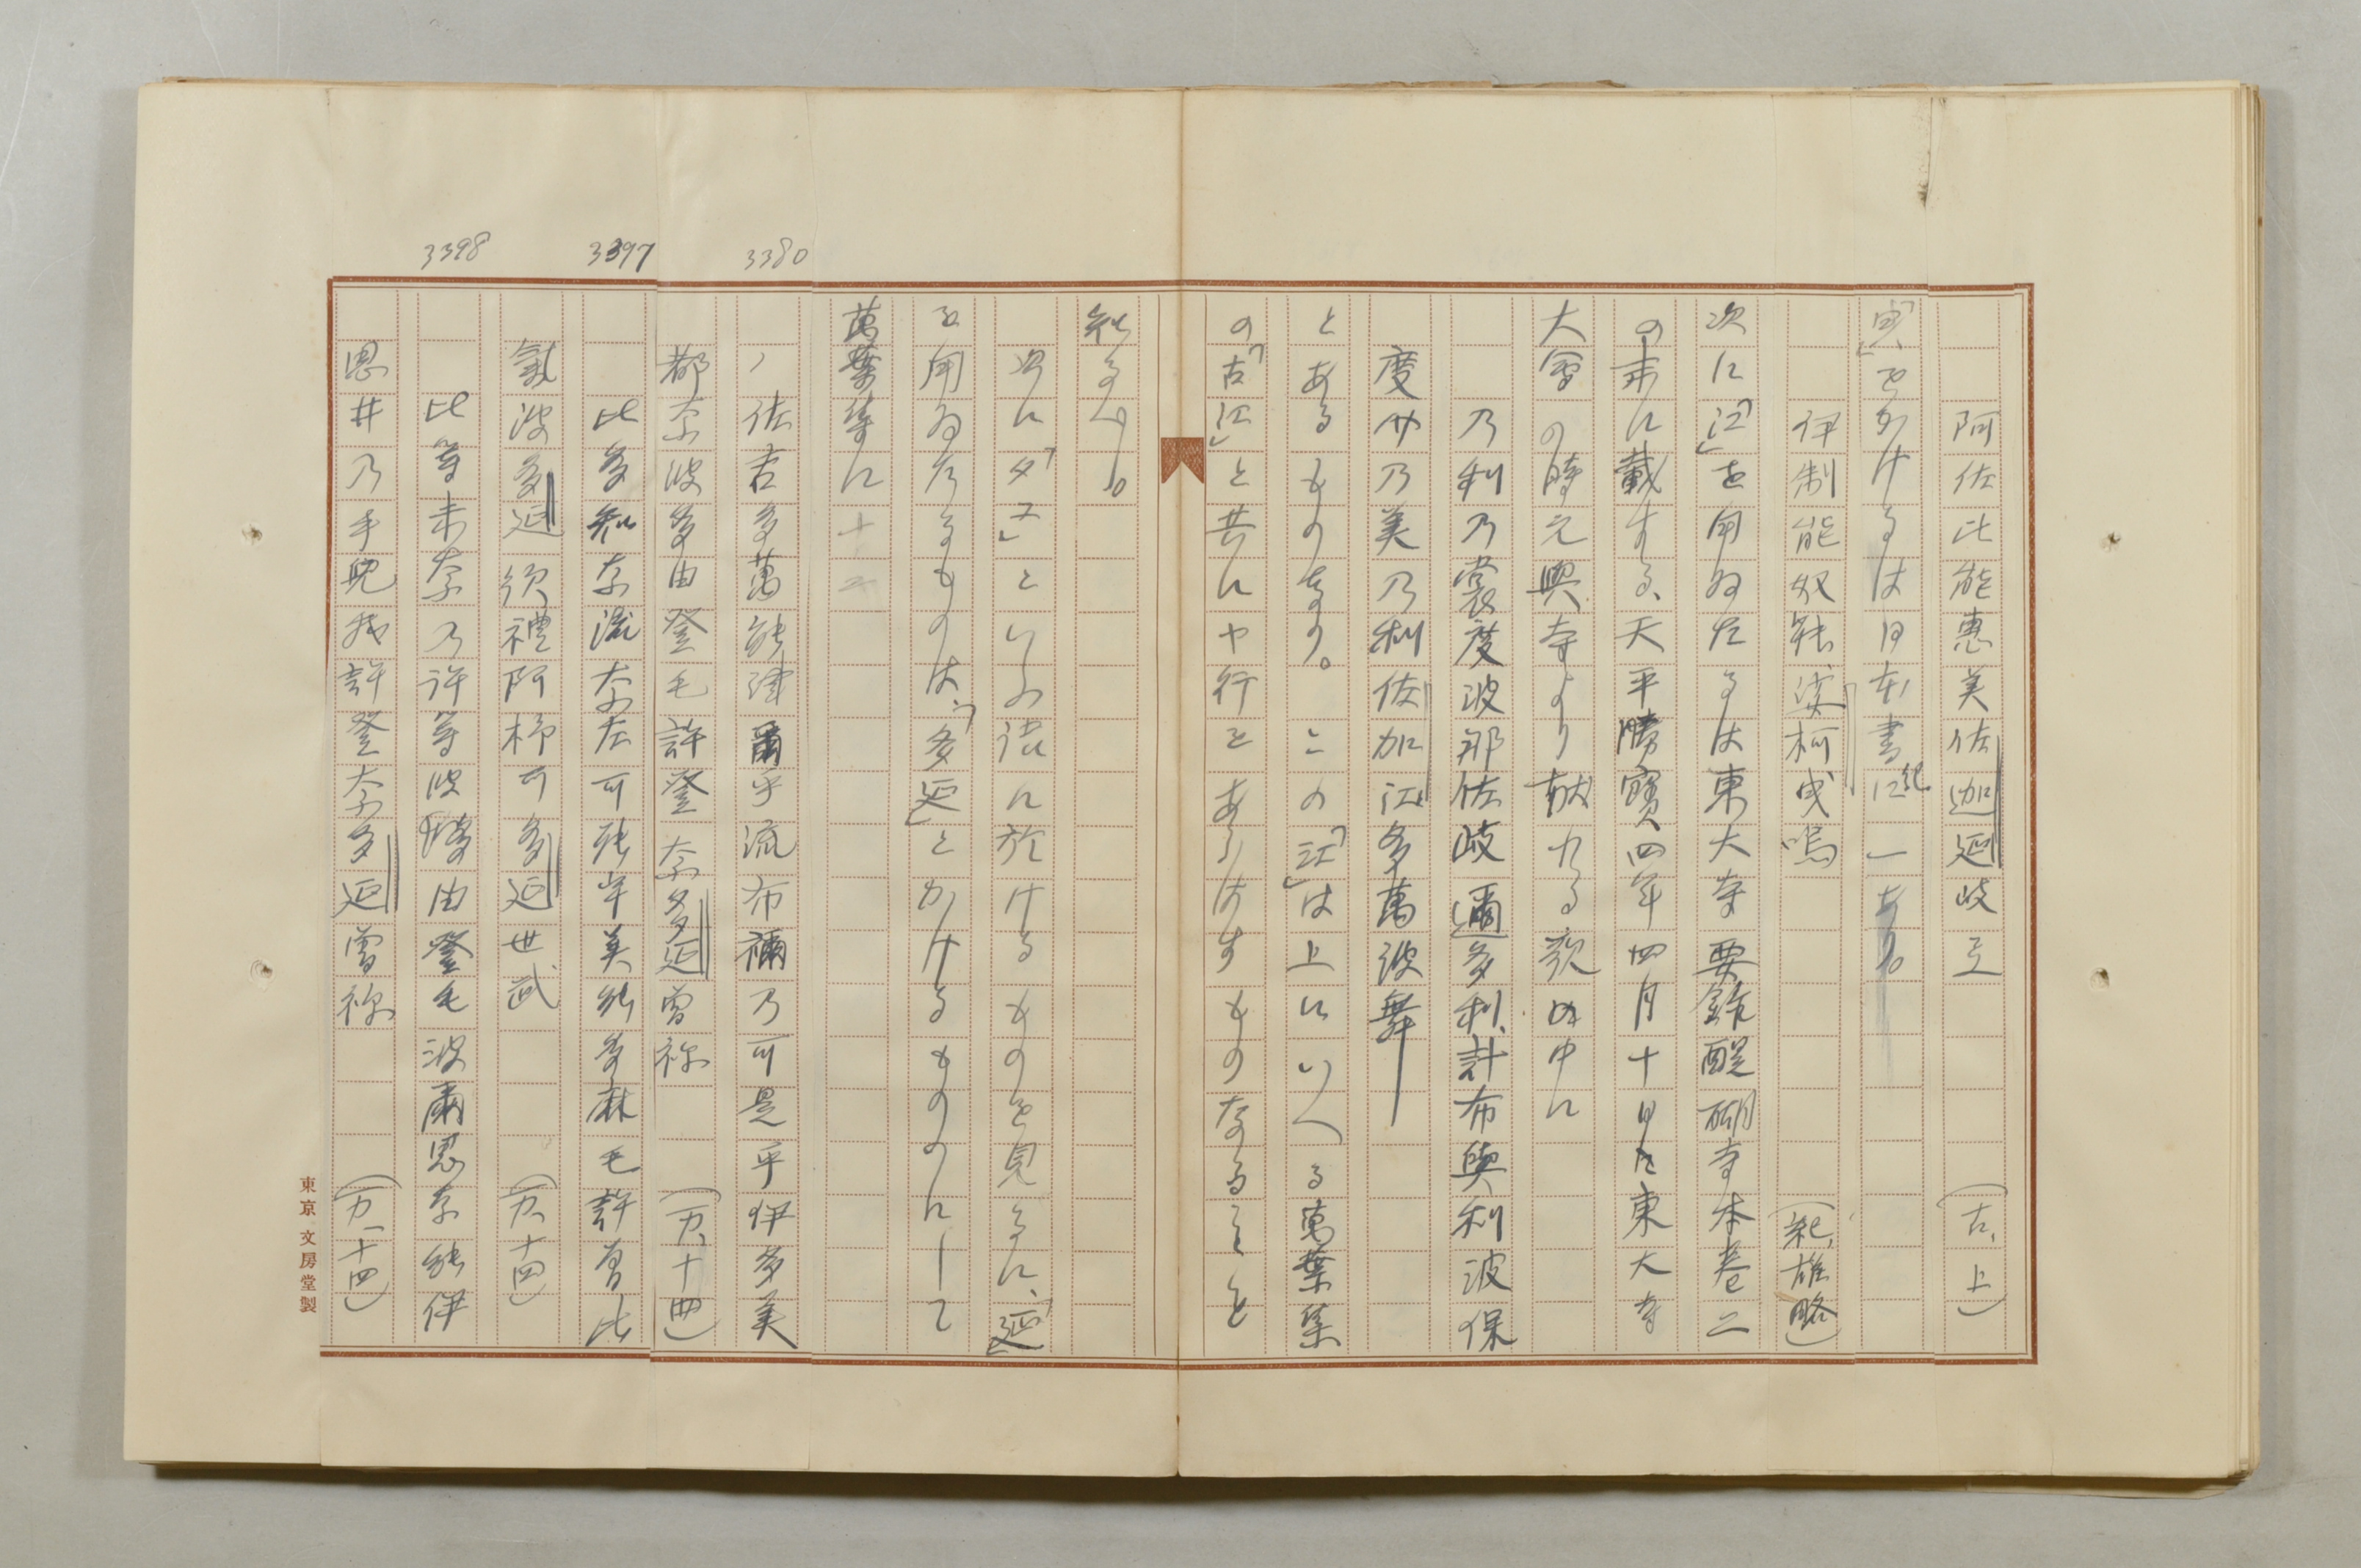 阿佐比能惠美佐迦延岐弖 (古、上)
「曳」をかけるは日本書紀に一あり。
伊制能奴能娑柯曳鳴 (紀、雄略)
次に「江」を用ゐたるは東大寺要錄醍醐寺本卷二
の末に載する、天平勝寶四年四月十日東大寺
大會の時元興寺より献れる歌の中に
乃利乃裳度波那佐岐邇多利計布與利波保
度介乃美乃利佐加江多萬波舞
とあるものあり。この「江」は上にいへる萬葉集
の「古江」と共にや行をあらはすものなることを
知るべし。
次に「タエ」といふ語に於けるものを見るに、「延」
を用ゐたるものは、「多延」とかけるものにして
萬葉集に
佐吉多萬能津爾乎流布禰乃可是乎伊多美
都奈波多由登毛許登奈多延曾祢 (万、十四)
比多知奈流奈左可能宇美能多麻毛許曾比
氣波多延須禮阿杼可多延世武 (万、十四)
比等未奈乃許等波多由登毛波爾思奈能伊
思井乃手兒我許登奈多延曾祢 (万、十四)
3380
3397
3398
東京 文房堂製